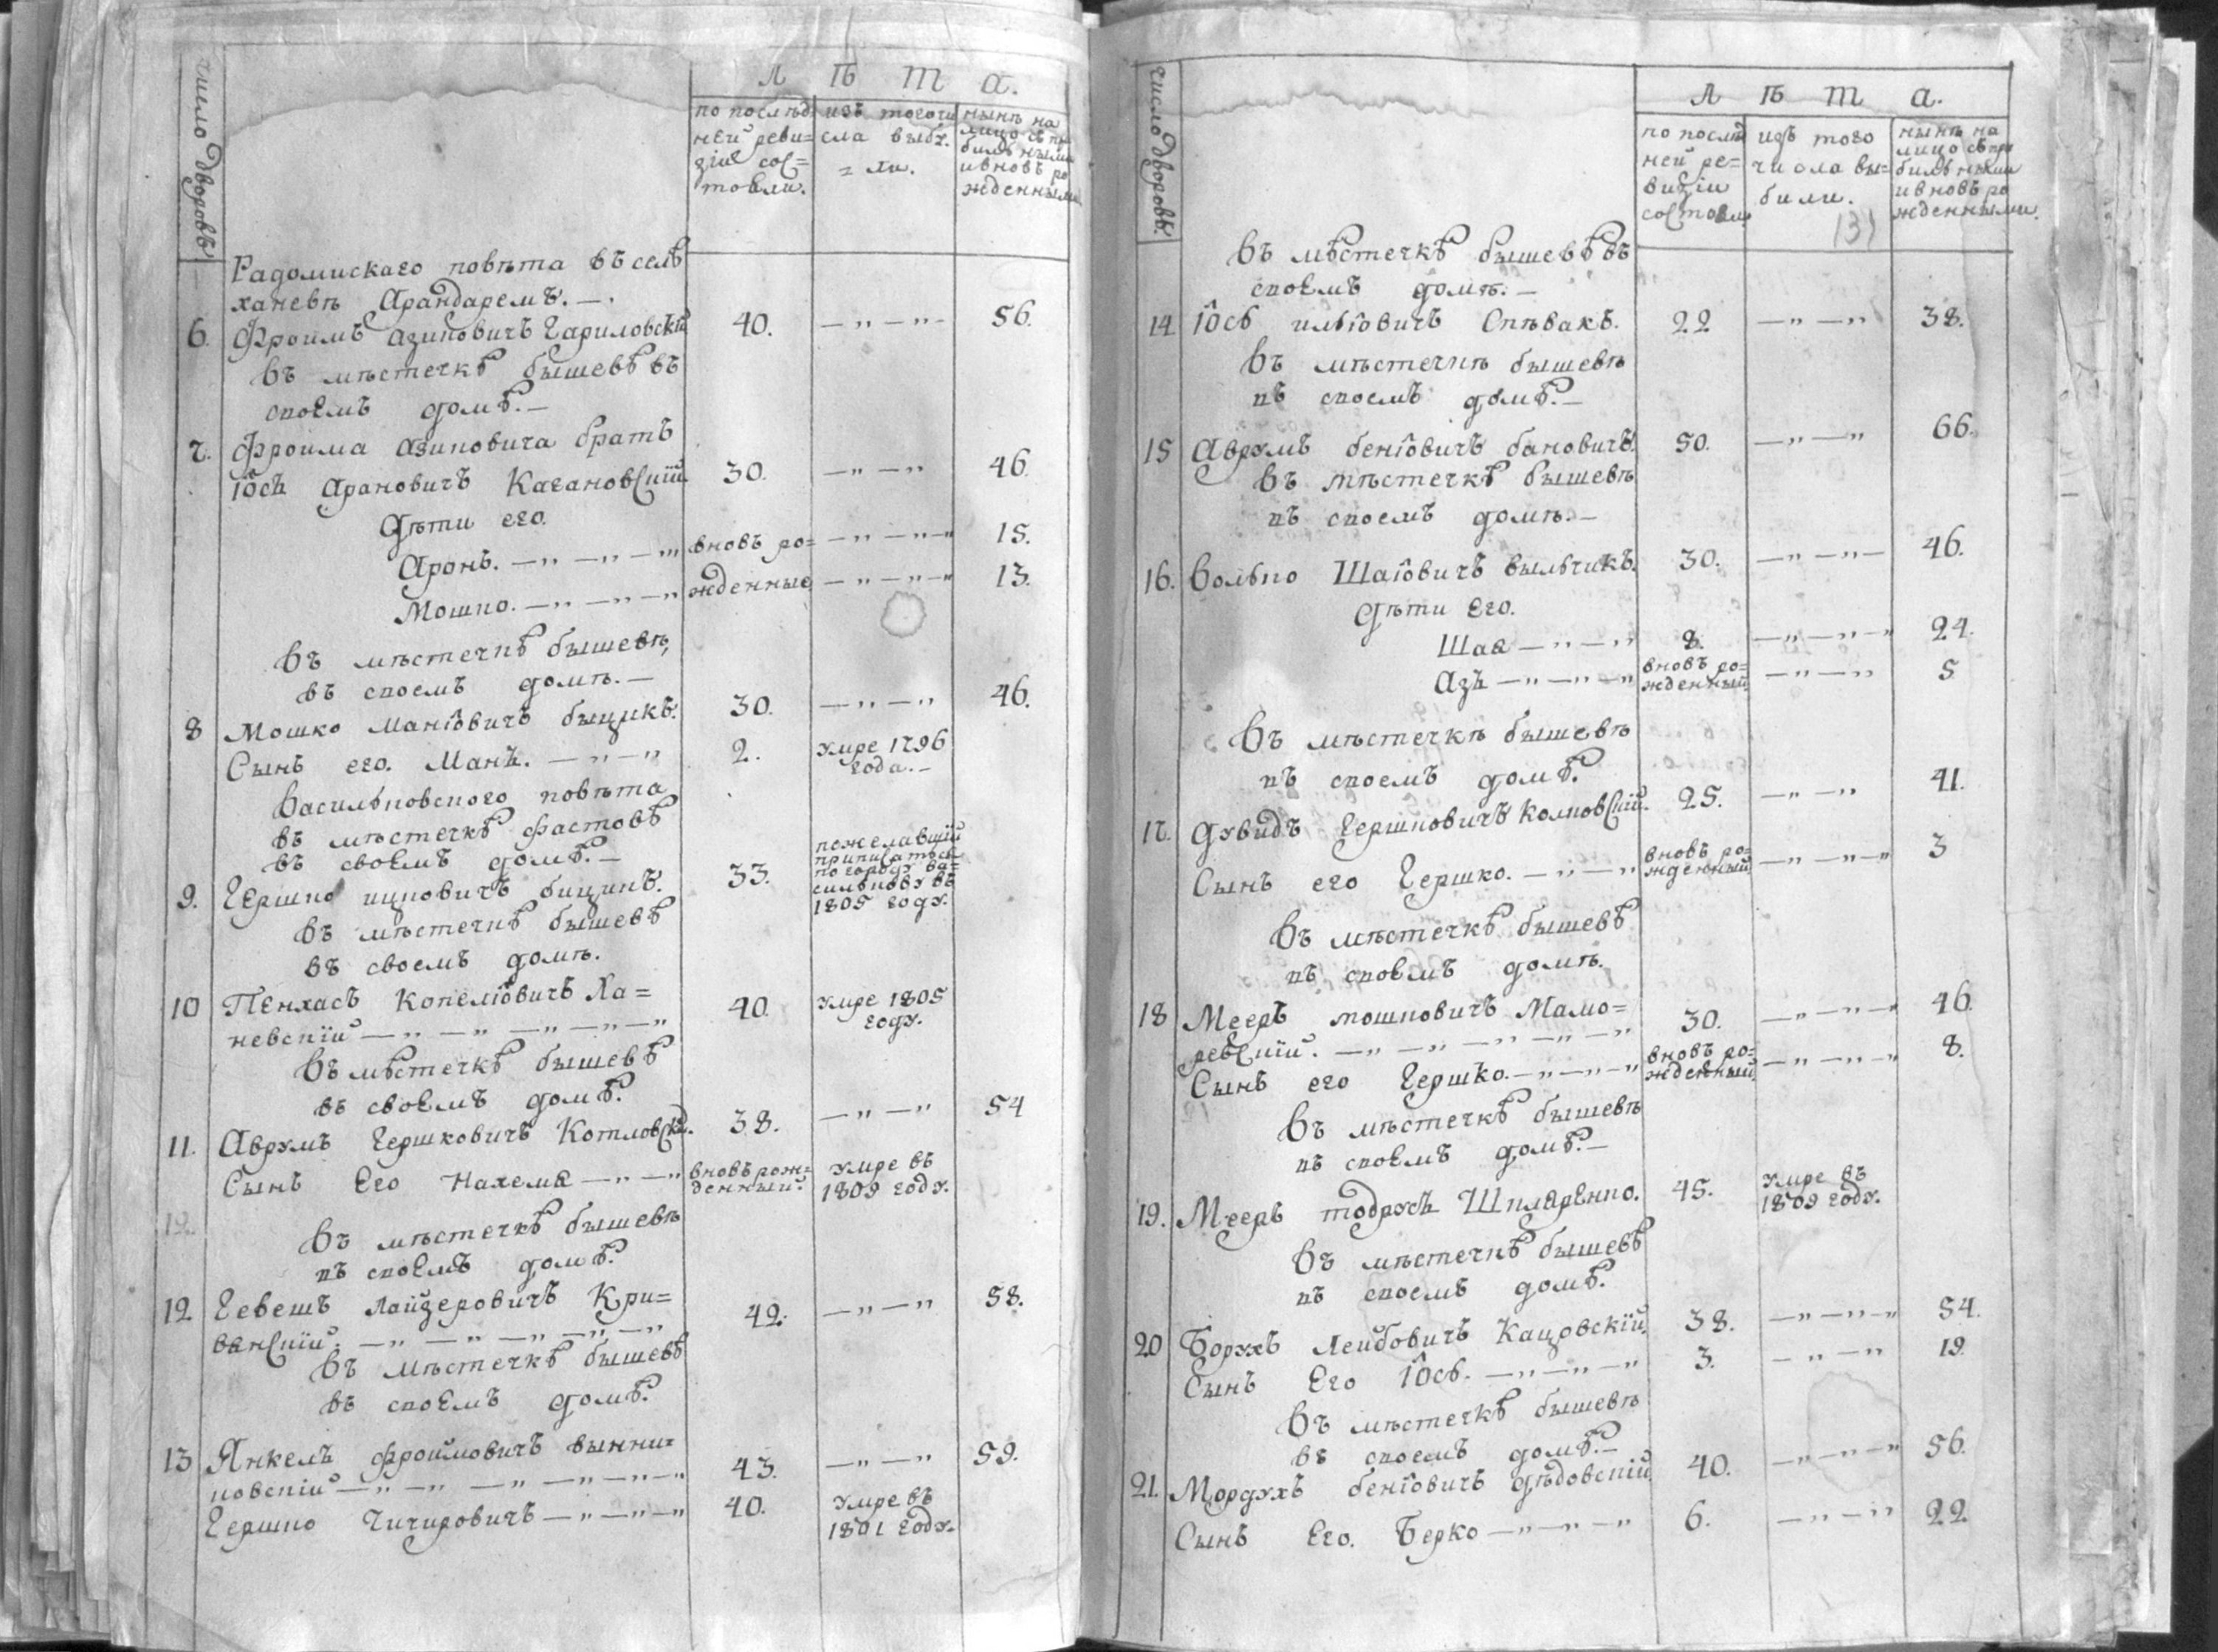 число дворовъ
Л ѣ т а.
по послѣд
ней реви=
зіи сос=
тояли.
изъ того чи
сла выбу.
= ли.
нынѣ на
лицо съ при
былѣными
и вновь ро
жденными.
Радомискаго повѣта въ селѣ
ханевѣ Арандаремъ. —.
6. Фроимъ Азиковичъ Гариловскій 40. — " — " - 56.
въ мѣстечкѣ бышевѣ въ
своемъ домѣ. —
7. Фроима Азиковича братъ
Іось Арановичъ Кагановскій 30. — " — " 46
дѣти его.
Аронъ. — " — " — " вновь ро= — " — " — " 15.
Мошко. — " — " — " жденные — " — " — " 13.
въ мѣстечкѣ бышевѣ,
въ своемъ домѣ. —
8 Мошко Маніовичъ быцикъ. 30. — " — " 46.
Сынъ его. Мань. — " — " 2. умре 1796
года. —
Васильковского повѣта
въ мѣстечкѣ фастовѣ
въ своемъ домѣ. —
9. Гершко ицковичъ бицикъ. 33. пожелавшій
приписатьсь
по городу Ва=
силькову въ
1805 году.
въ мѣстечкѣ бышевѣ
въ своемъ домѣ.
10 Пенхасъ Копеліовичъ Ха=
невскій — " — " — " — " — " 40. умре 1805
году.
въ мѣстечкѣ бышевѣ
въ своемъ домѣ.
11. Аврумъ Гершковичъ Котловскій. 38. — " — " 54
Сынъ Его Нахема — " — " вновь рож=
денный. умре въ
1809 году.
12.
въ мѣстечкѣ бышевѣ
въ своемъ домѣ.
12 Гевешъ Лайзеровичъ Кри=
ванскій. — " — " — " — " — " 42. — " — " 58.
въ мѣстечкѣ бышевѣ
въ своемъ домѣ.
13 Янкель Фроимовичъ вынни=
ковскій — " — " — " — " — " 43. — " — " 59.
Гершко Чичировичъ — " — " — " 40. умре въ
1801 году.
число дворовъ.
Л ѣ т а.
по послѣд
ней ре=
визіи
состояли
изъ того
числа вы=
били.
нынѣ на
лицо съ при
былѣными
и вновь ро
жденными.
131
въ мѣстечкѣ бышевѣ въ
своемъ домѣ. —
14 Іось ильіовичъ Спѣвакъ. 22 — " — " 38.
въ мѣстечкѣ бышевѣ
въ своемъ домѣ. —
15 Аврумъ беніовичъ бановичъ. 50. — " — " 66.
въ мѣстечкѣ бышевѣ
въ своемъ домѣ. —
16. Волько Шаіовичъ вильчикъ. 30. — " — " — 46.
дѣти Его.
Шая — " — " 8. — " — " — " 24.
Азъ — " — " — " вновь ро=
жденный — " — " 5
въ мѣстечкѣ бышевѣ
въ своемъ домѣ.
17. Дувидъ Гершковичъ Колковскій. 25. — " — " 41.
Сынъ его Гершко. — " — " вновь ро=
жденный — " — " — " 3
въ мѣстечкѣ бышевѣ
въ своемъ домѣ.
18 Мееръ мошковичъ Мамо=
ревскій. — " — " — " — " — " 30. — " — " — " 46.
Сынъ его Гершко. — " — " — " вновь ро=
жденный — " — " — " 8.
въ мѣстечкѣ бышевѣ
въ своемъ домѣ. —
19. Мееръ тодрусъ Шпляренко. 45. умре въ
1809 году.
въ мѣстечкѣ бышевѣ
въ своемъ домѣ.
20 Борухъ Лейбовичъ Кацовскій. 38. — " — " — " 54.
Сынъ Его Іось. — " — " — " 3. — " — " 19.
въ мѣстечкѣ бышевѣ
въ своемъ домѣ. —
21. Мордухъ беніовичъ дѣдовскій 40. — " — " — " 56.
Сынъ Его. Берко — " — " — " 6. — " — " 22